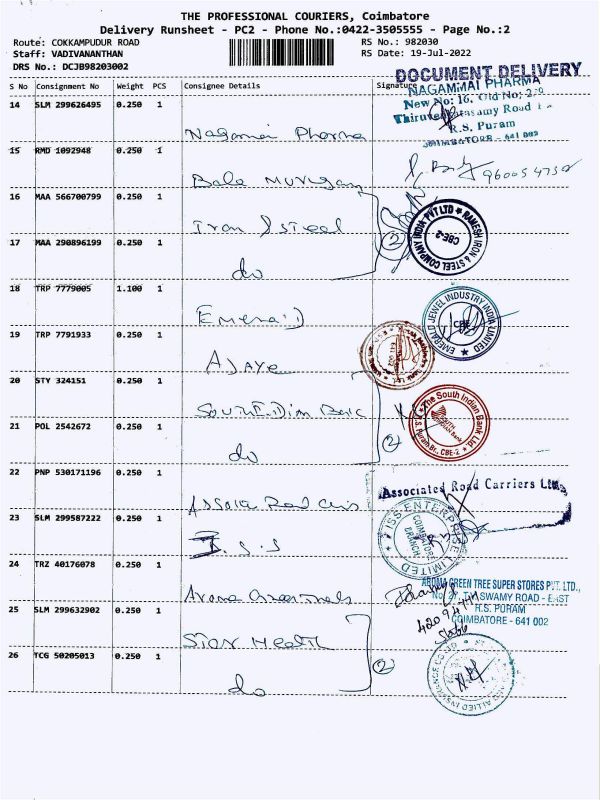 THE PROFESSIONAL COURIERS, Coimbatore
Delivery Runsheet - PC2 - Phone No.:0422-3505555 - Page No.:2
Route: COKKAMPUDUR ROAD RS No.: 982030
Staff: VADIVANANTHAN RS Date: 19-Jul-2022
DRS No.: DCJB98203002
DOCUMENT DELIVERY
S No Consignment No Weight PCS Consignee Details Signature
NAGAMMAI PHARMA
14 SLM 299626495 0.250 1
New No: 16, Old No:
Road
R.S. Puram
Nagamai Pharma
COIMBATORE - 641 002
15 RMD 1092948 0.250 1
Bala Murugan
16 MAA 566700799 0.250 1
Iron & Steel
RAMESH IRON & STEEL COMPANY INDIA PVT LTD
CBE-2
2
17 MAA 290896199 0.250 1
do
18 TRP 7779005 1.100 1
Emerald
EMERALD JEWEL INDUSTRY INDIA LIMITED
CBE
19 TRP 7791933 0.250 1
20 STY 324151 0.250 1
South Indian Bank
The South Indian Bank Ltd.
R.S. Puram Br., CBE-2
SOUTH INDIAN Bank
21 POL 2542672 0.250 1
do
2
22 PNP 530171196 0.250 1
Associated Road Carriers
23 SLM 299587222 0.250 1
I.S.S
ISS ENTERPRISE LIMITED
COIMBATORE BRANCH
24 TRZ 40176078 0.250 1
AROMA GREEN TREE SUPER STORES PVT. LTD.,
SWAMY ROAD - EAST
R.S. PURAM
COIMBATORE - 641 002
Aroma
25 SLM 299632902 0.250 1
Star Health
26 TCG 50205013 0.250 1
do
2